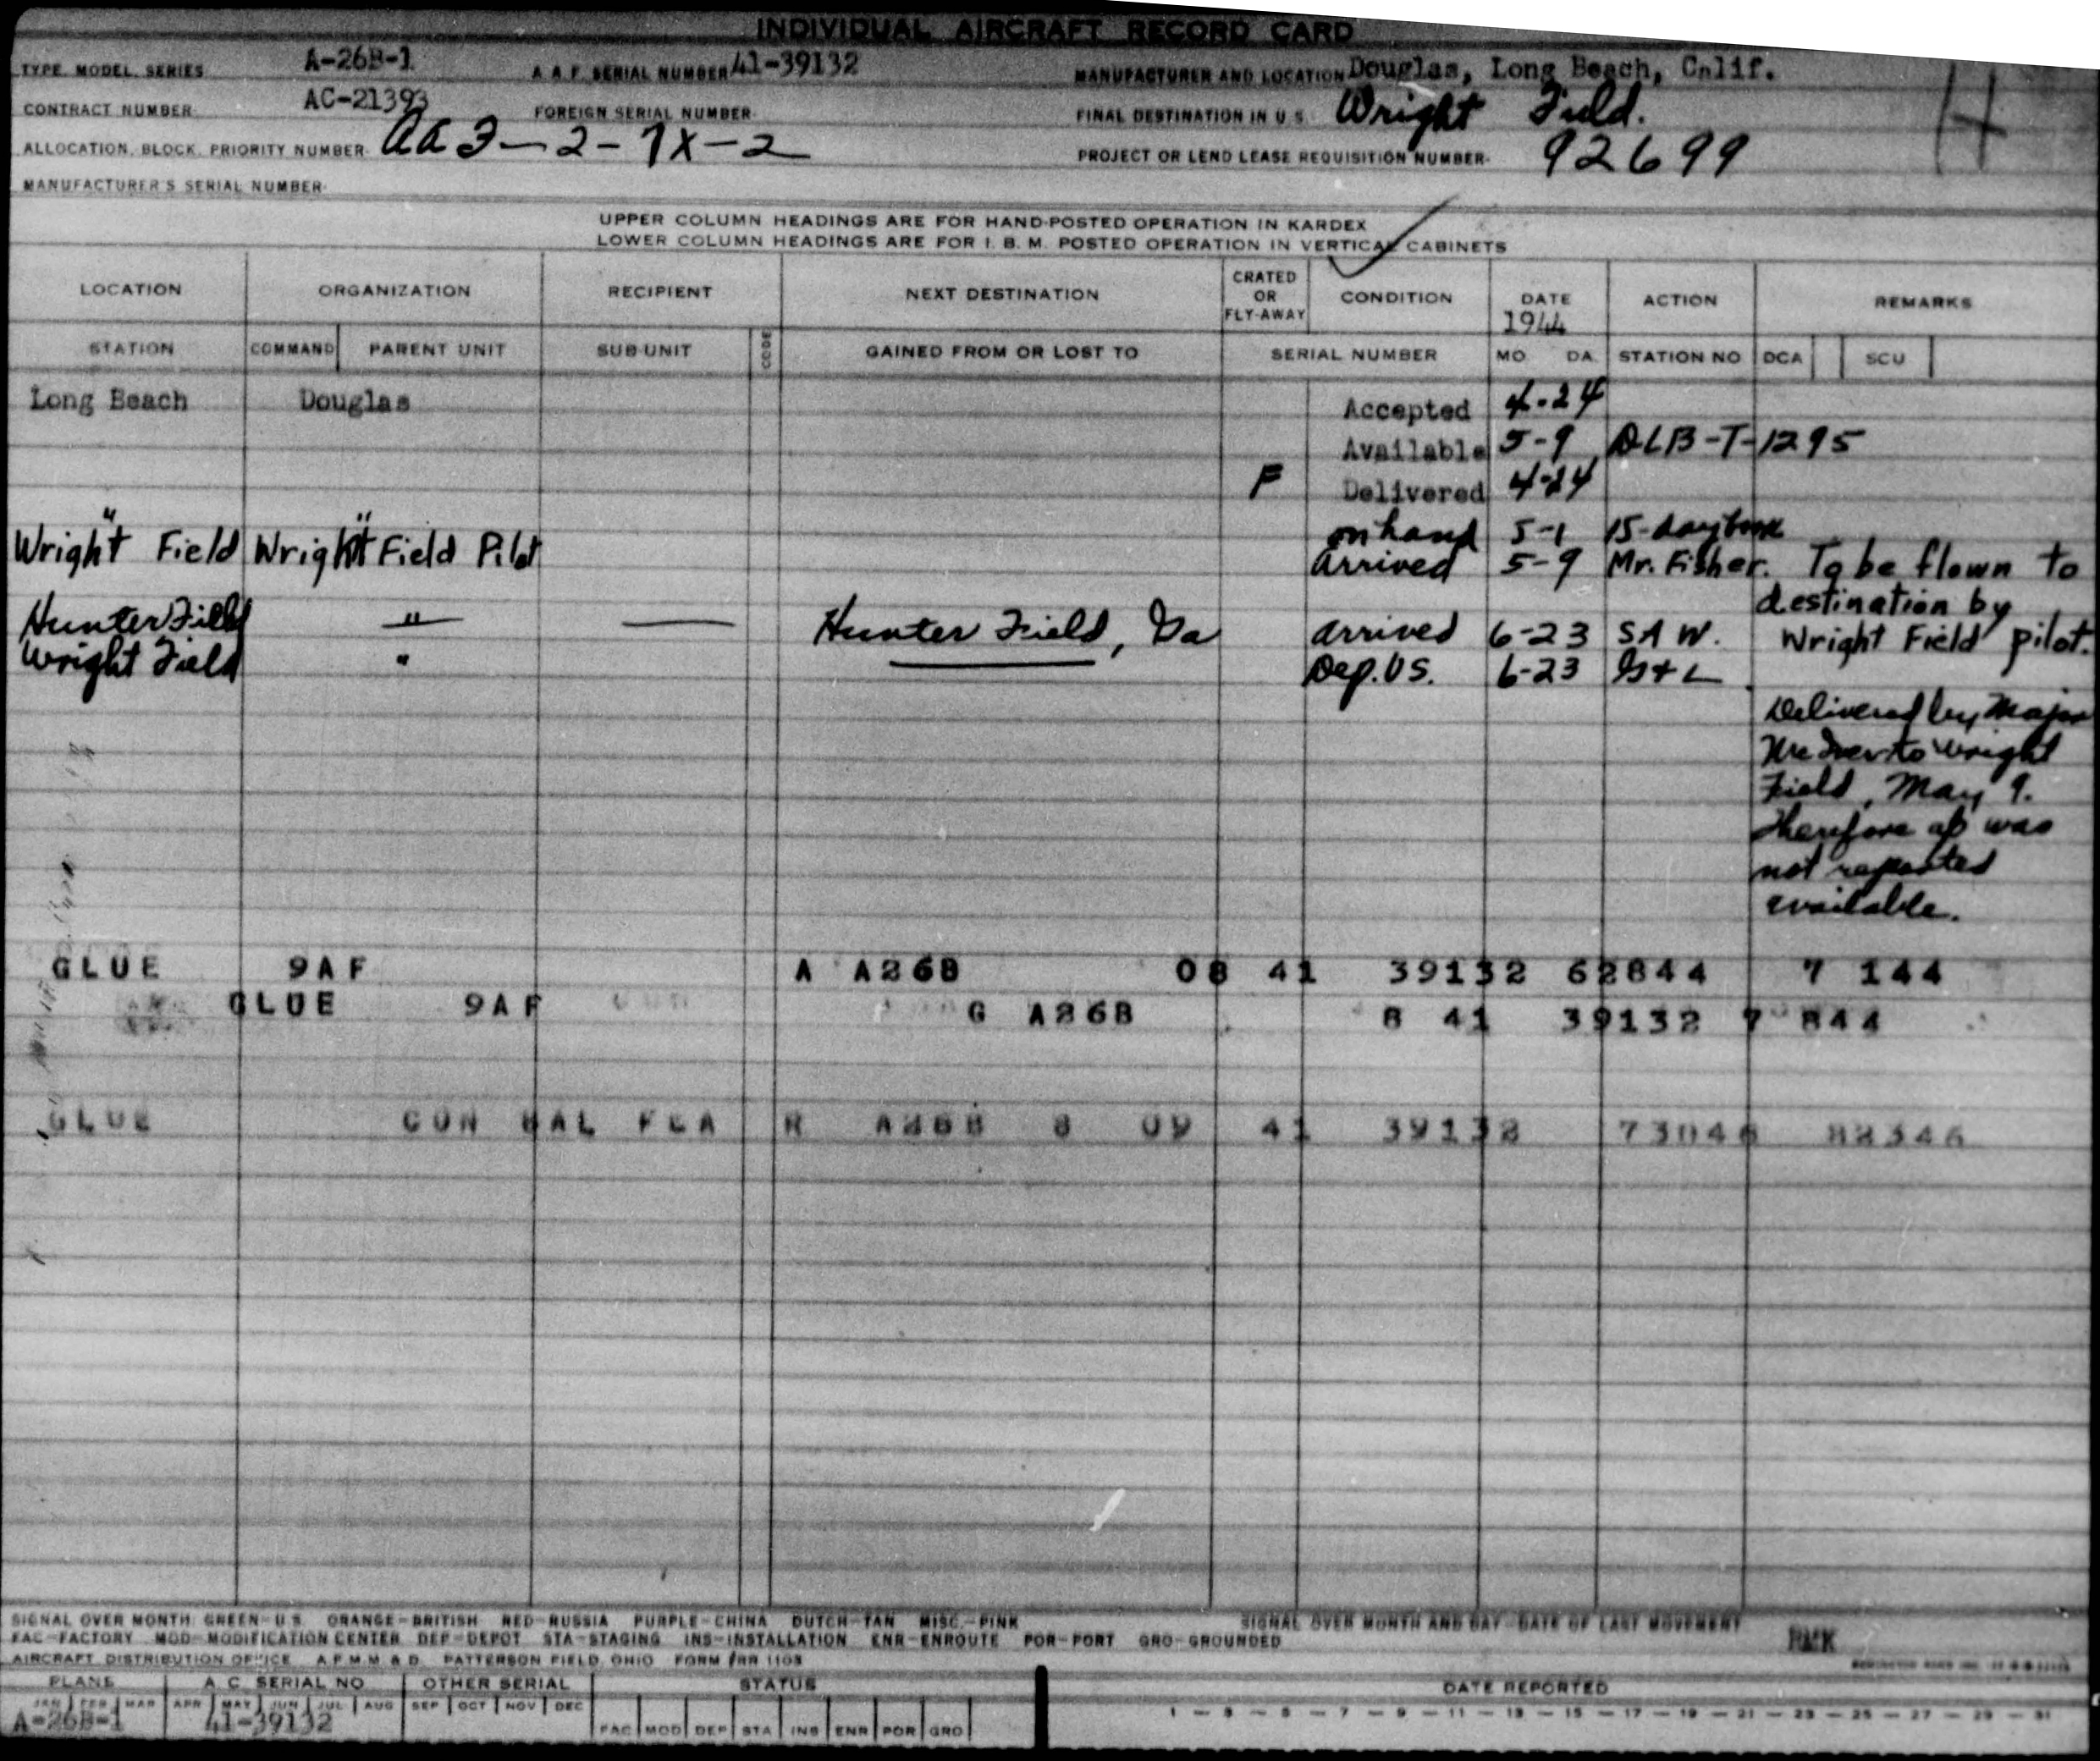 INDIVIDUAL AIRCRAFT RECORD CARD
TYPE, MODEL, SERIES A-26B-1 A.A.F. SERIAL NUMBER 41-39132 MANUFACTURER AND LOCATION Douglas, Long Beach, Calif.
CONTRACT NUMBER AC-21393 FOREIGN SERIAL NUMBER FINAL DESTINATION IN U.S. Wright Field.
ALLOCATION, BLOCK, PRIORITY NUMBER AA 3-2-7X-2 PROJECT OR LEND LEASE REQUISITION NUMBER 92699
MANUFACTURER'S SERIAL NUMBER
UPPER COLUMN HEADINGS ARE FOR HAND-POSTED OPERATION IN KARDEX
LOWER COLUMN HEADINGS ARE FOR I. B. M. POSTED OPERATION IN VERTICAL CABINETS
LOCATION ORGANIZATION RECIPIENT NEXT DESTINATION CRATED OR FLY-AWAY CONDITION DATE 1944 ACTION REMARKS
STATION COMMAND PARENT UNIT SUB-UNIT CODE GAINED FROM OR LOST TO SERIAL NUMBER MO. DA. STATION NO DCA SCU
Long Beach Douglas Accepted 4-24
Available 5-9 DLB-T-1295
F Delivered 4-24
" " on hand 5-1 15-day
Wright Field Wright Field Pilot Arrived 5-9 Mr. Fisher. To be flown to
destination by
Hunter Field " Hunter Field, Ga arrived 6-23 SAW. Wright Field pilot.
Wright Field " Dep. US. 6-23
Delivered by Major
to Wright
Field, May 9.
Therefore ap was
not reported
available.
GLUE 9AF A A26B 08 41 39132 62844 7 144
GLUE 9AF G A26B 8 41 39132 7 844
GLUE CON SAL FEA R A26B 8 09 41 39132 73046 82346
SIGNAL OVER MONTH: GREEN-U.S. ORANGE-BRITISH RED-RUSSIA PURPLE-CHINA DUTCH-TAN MISC.-PINK SIGNAL OVER MONTH AND DAY-DATE OF LAST MOVEMENT
FAC-FACTORY MOD-MODIFICATION CENTER DEP-DEPOT STA-STAGING INS-INSTALLATION ENR-ENROUTE POR-PORT GRO-GROUNDED RMK
AIRCRAFT DISTRIBUTION OFFICE A.F.M.M.&D. PATTERSON FIELD, OHIO FORM #RR 1103
PLANE A.C. SERIAL NO OTHER SERIAL STATUS DATE REPORTED
JAN FEB MAR APR MAY JUN JUL AUG SEP OCT NOV DEC 1-3-5-7-9-11-13-15-17-19-21-23-25-27-29-31
A-26B-1 41-39132 FAC MOD DEP STA INS ENR POR GRO